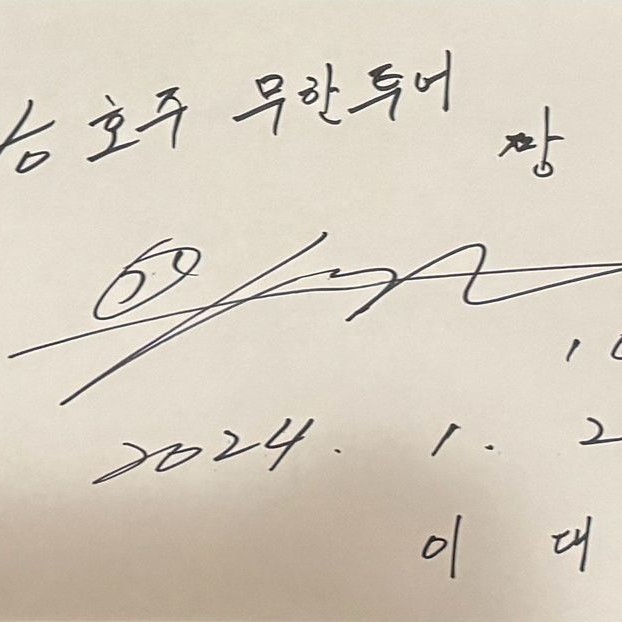 호주 무한투어
짱
2024. 1. 2
이 대